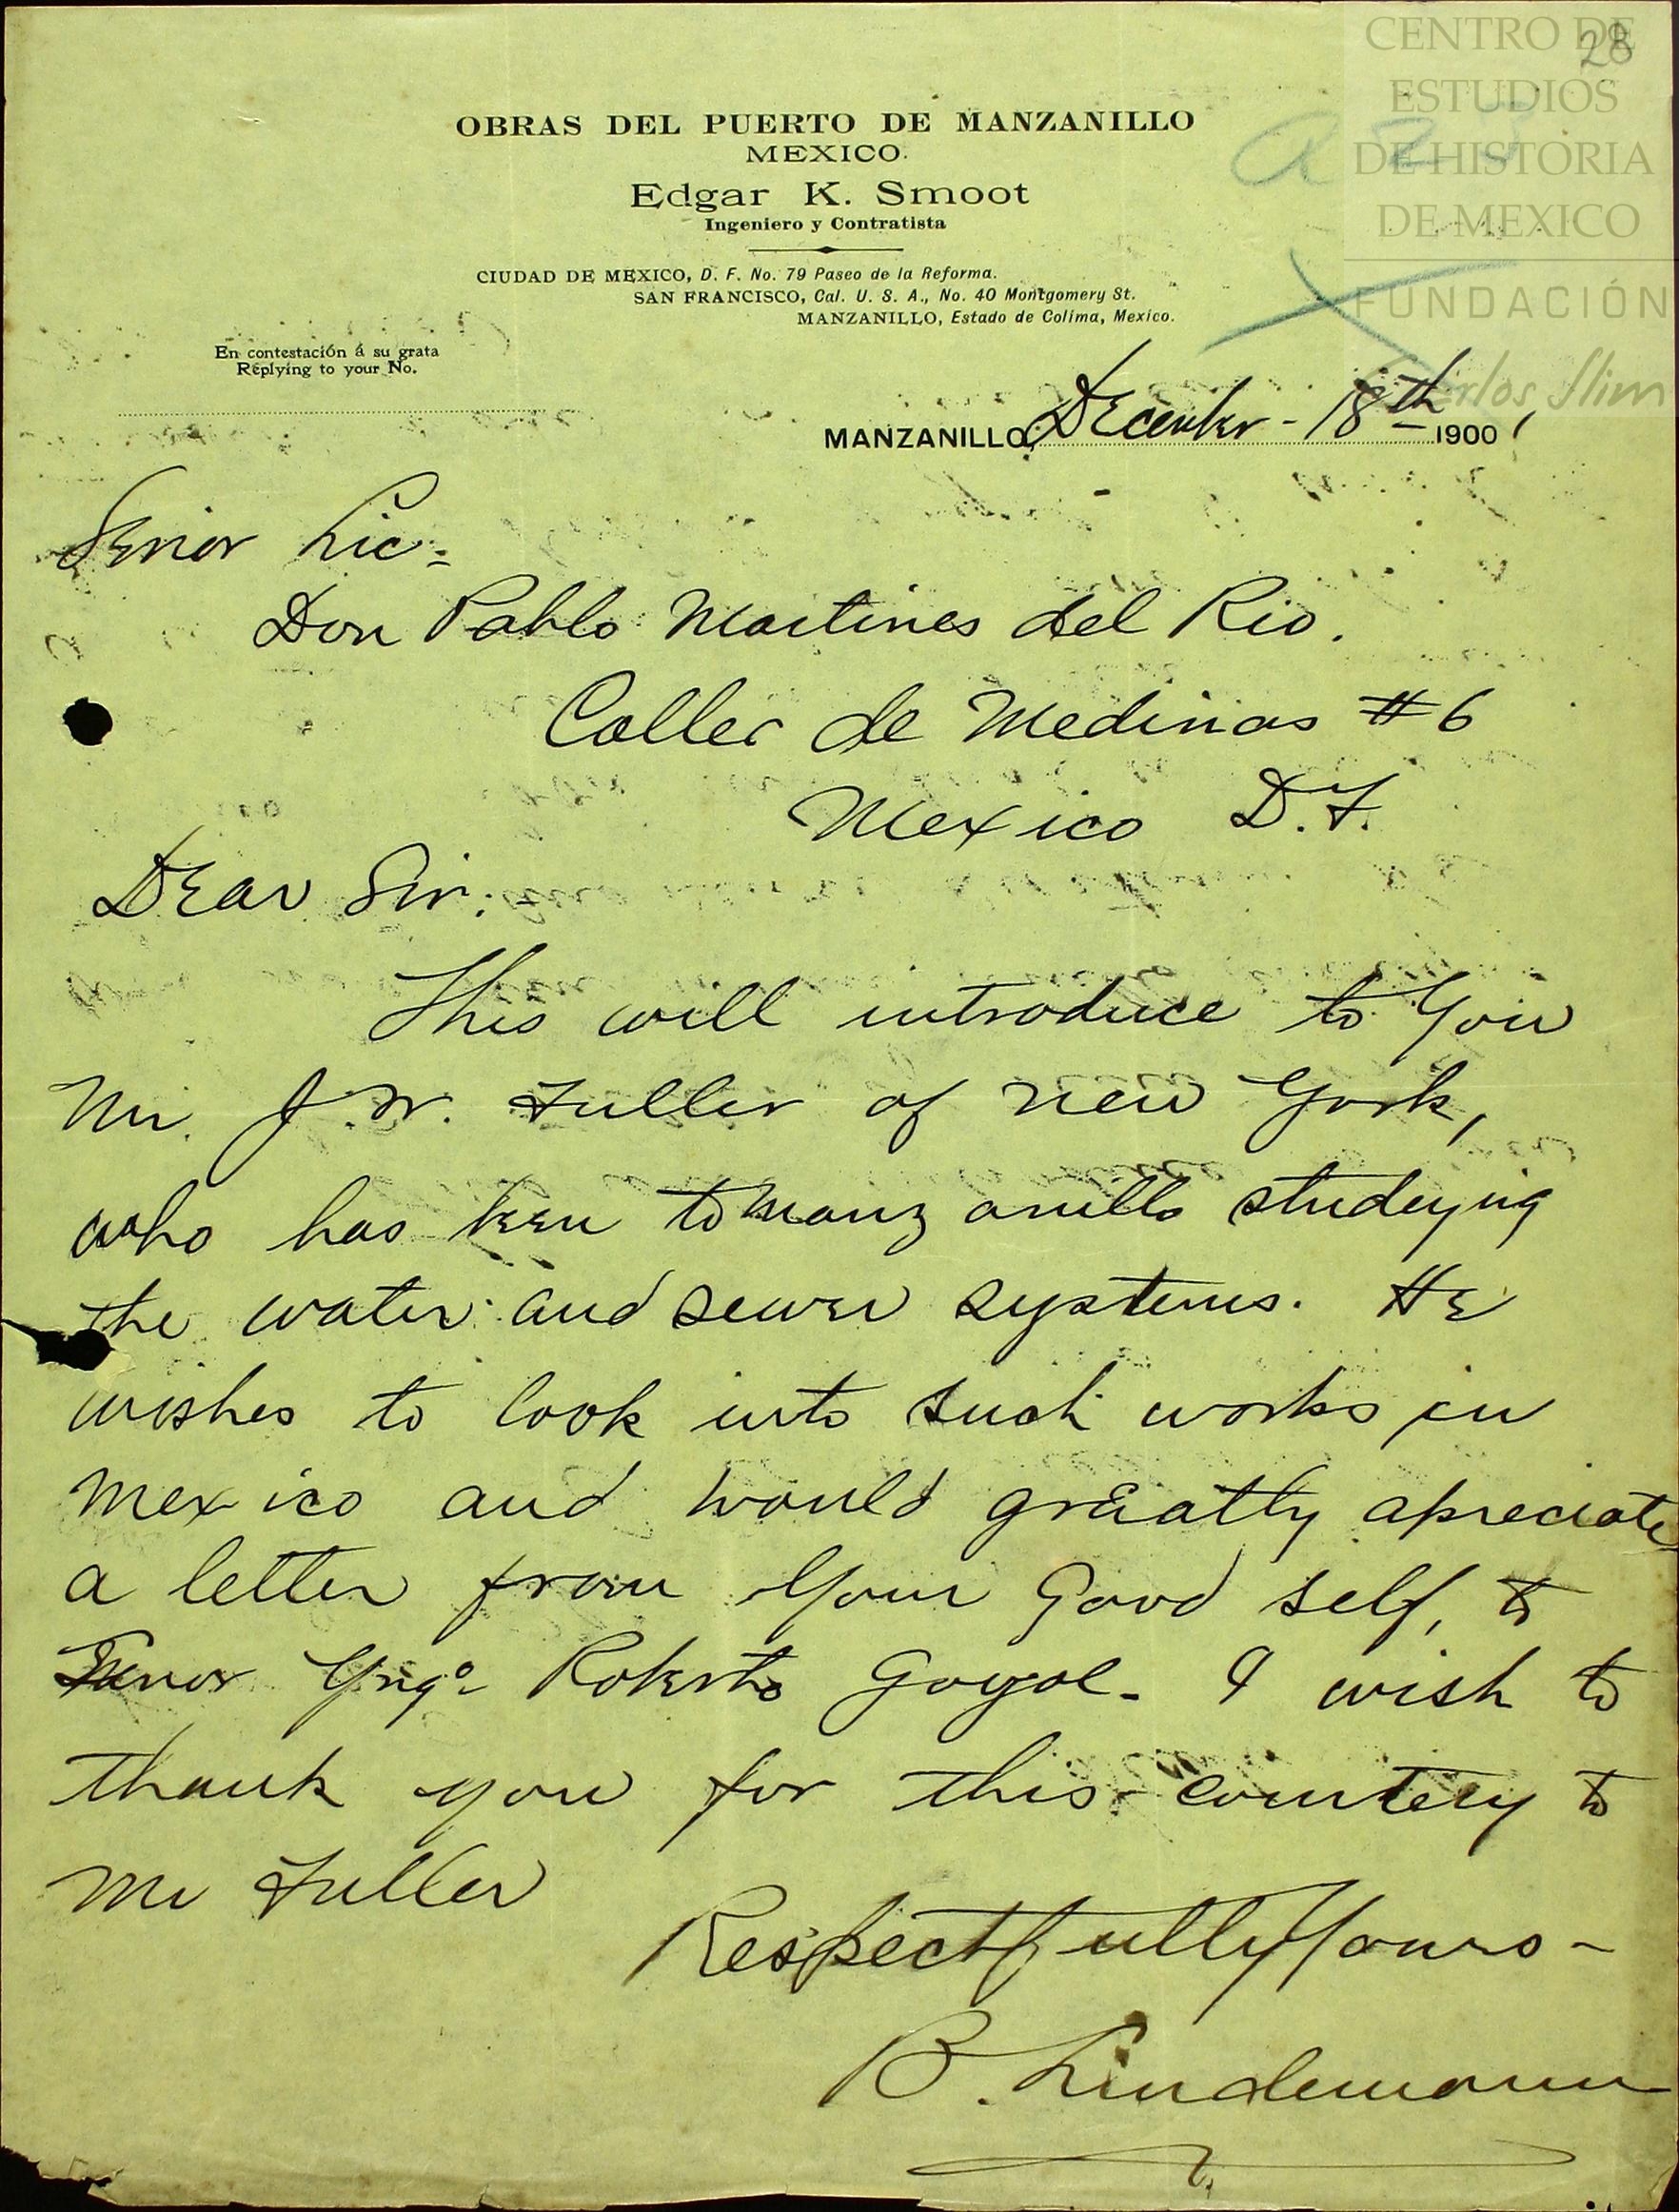 CENTRO DE
ESTUDIOS
DE HISTORIA
DE MEXICO
FUNDACIÓN
Carlos Slim
28
OBRAS DEL PUERTO DE MANZANILLO
MEXICO.
Edgar K. Smoot
Ingeniero y Contratista
CIUDAD DE MEXICO, D. F. No. 79 Paseo de la Reforma.
SAN FRANCISCO, Cal. U. S. A., No. 40 Montgomery St.
MANZANILLO, Estado de Colima, Mexico.
En contestación á su grata
Replying to your No.
MANZANILLO, December - 18th 1900
Senior Lic.
Don Pablo Martines del Rio.
Calle de Medinas #6
Mexico D.F.
Dear Sir:
This will introduce to You
Mr. J. W. Fuller of New York,
who has been to Manzanillo studeying
the water and sewer systems. He
wishes to look into such works in
Mexico and would greatly apreciate
a letter from Your Good self, to
Senor Yngo Roberto Gayol. I wish to
thank you for this courtesy to
Mr Fuller
Respectfully Yours -
B. Lindemann